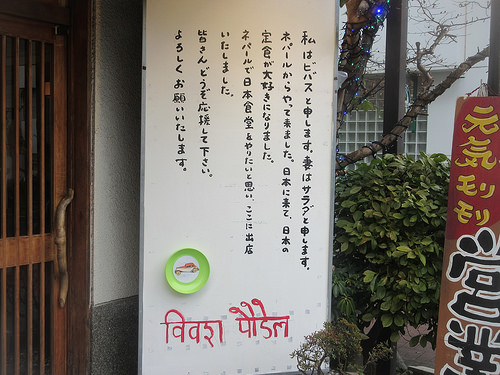 私はビバスと申します。妻はサラダと申します。
ネパールからやって来ました。日本に来て、日本の
定食が大好きになりました。
ネパールで日本食堂をやりたいと思い、ここに出店
いたしました。
皆さんどうぞ応援して下さい。
よろしくお願いいたします。
विवश पौडेल
元気モリモリ
営業